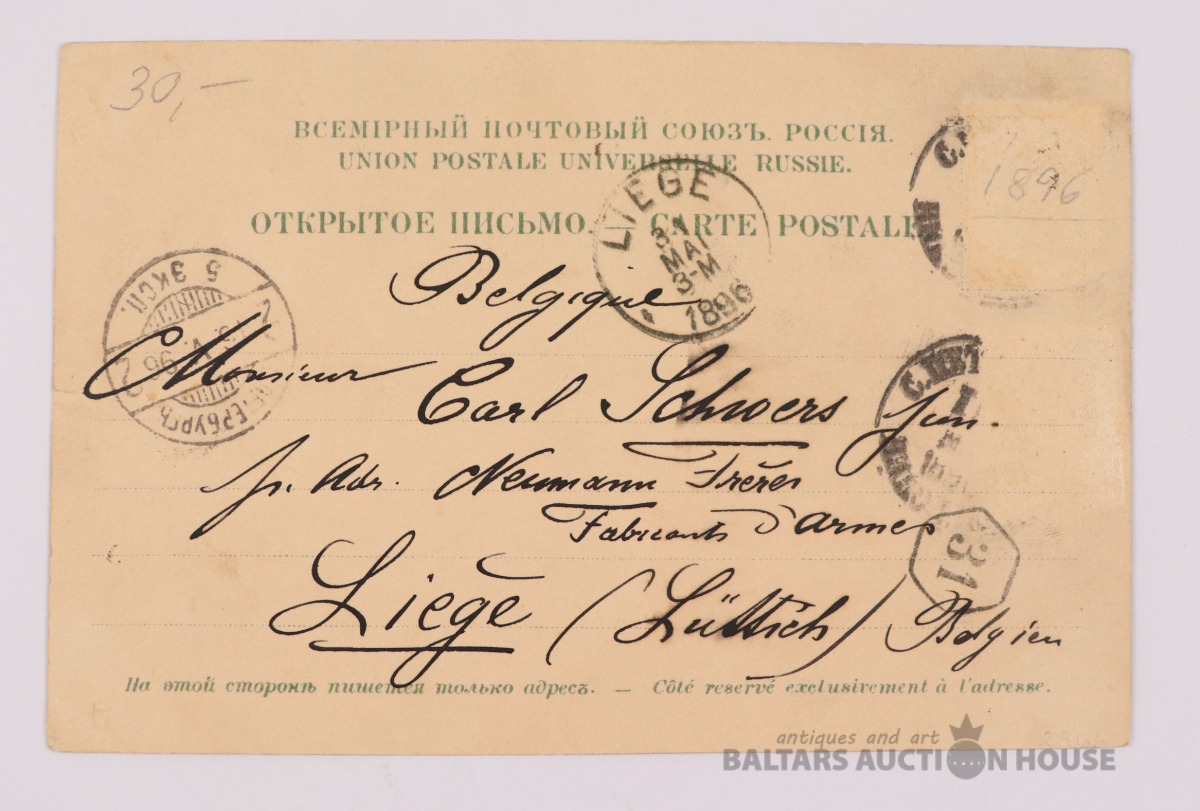 30,-
ВСЕМІРНЫЙ ПОЧТОВЫЙ СОЮЗЪ. РОССІЯ.
UNION POSTALE UNIVERSELLE RUSSIE.
1896
ОТКРЫТОЕ ПИСЬМО. — CARTE POSTALE
LIEGE
MAI
1896
5 ЭКСП.
Belgique
Monsieur
Carl Schwers jun.
Adr. Neumann Frères
Fabricants d'armes
31
Liegè (Lüttich) Belgien
На этой сторонѣ пишется только адресъ. — Côté reservé exclusivement à l'adresse.
antiques and art
BALTARS AUCTION HOUSE